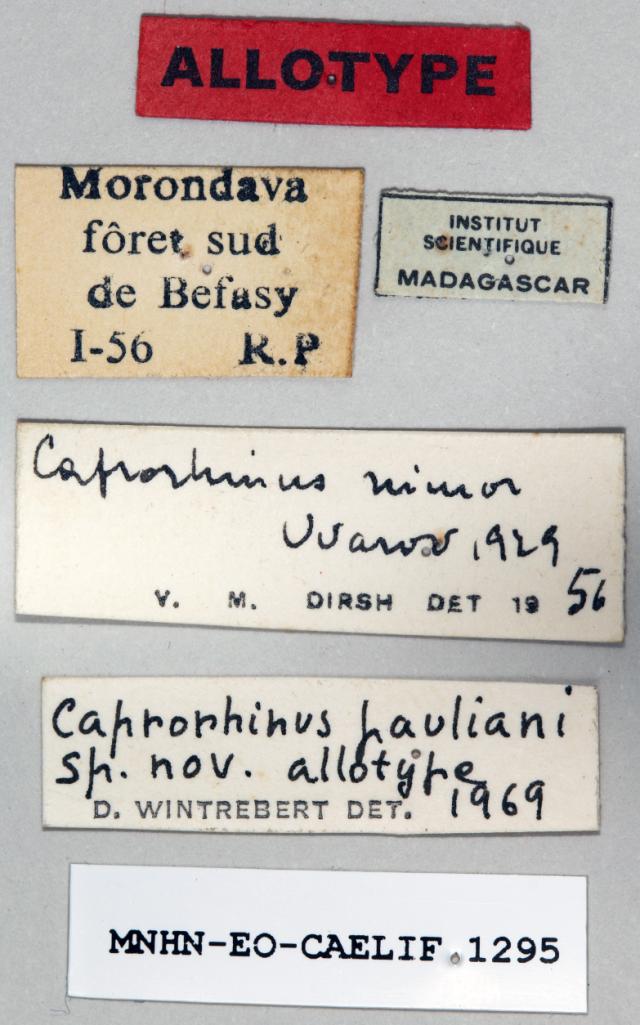 ALLOTYPE
Morondava
fôret sud
de Befasy
I-56 R.P
INSTITUT
SCIENTIFIQUE
MADAGASCAR
Caprorhinus minor
Uvarov, 1929
V. M. DIRSH DET 19 56
Caprorhinus pauliani
sp. nov. allotype
D. WINTREBERT DET. 1969
MNHN-EO-CAELIF.1295